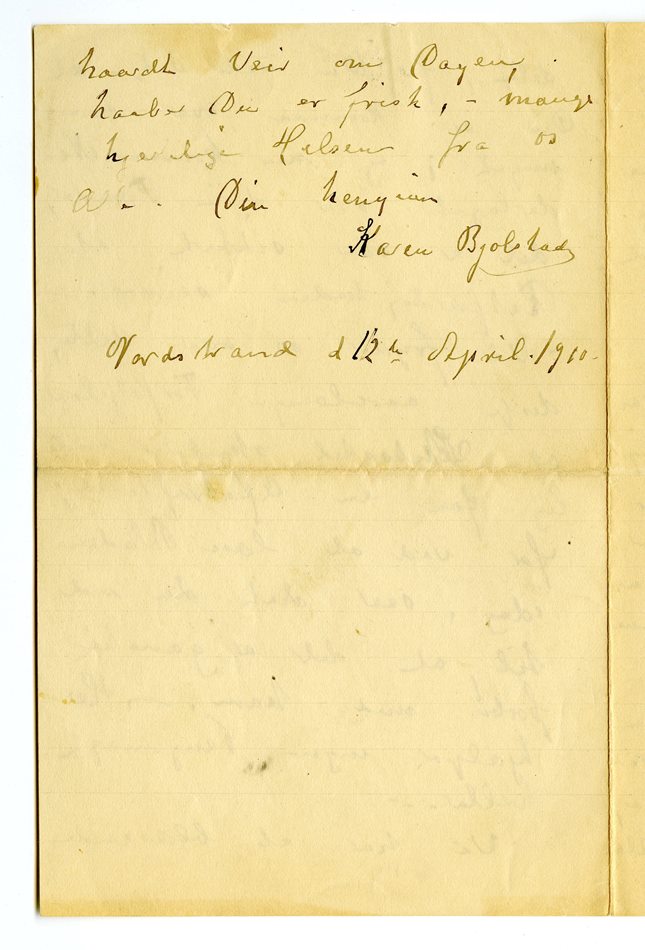 haardt Veir om Dagen,
haaber Du er frisk, - mange
hjertelige Hilsener fra os
Din hengivne
Karen Bjølstad
Nordstrand d 12te April. 1910.